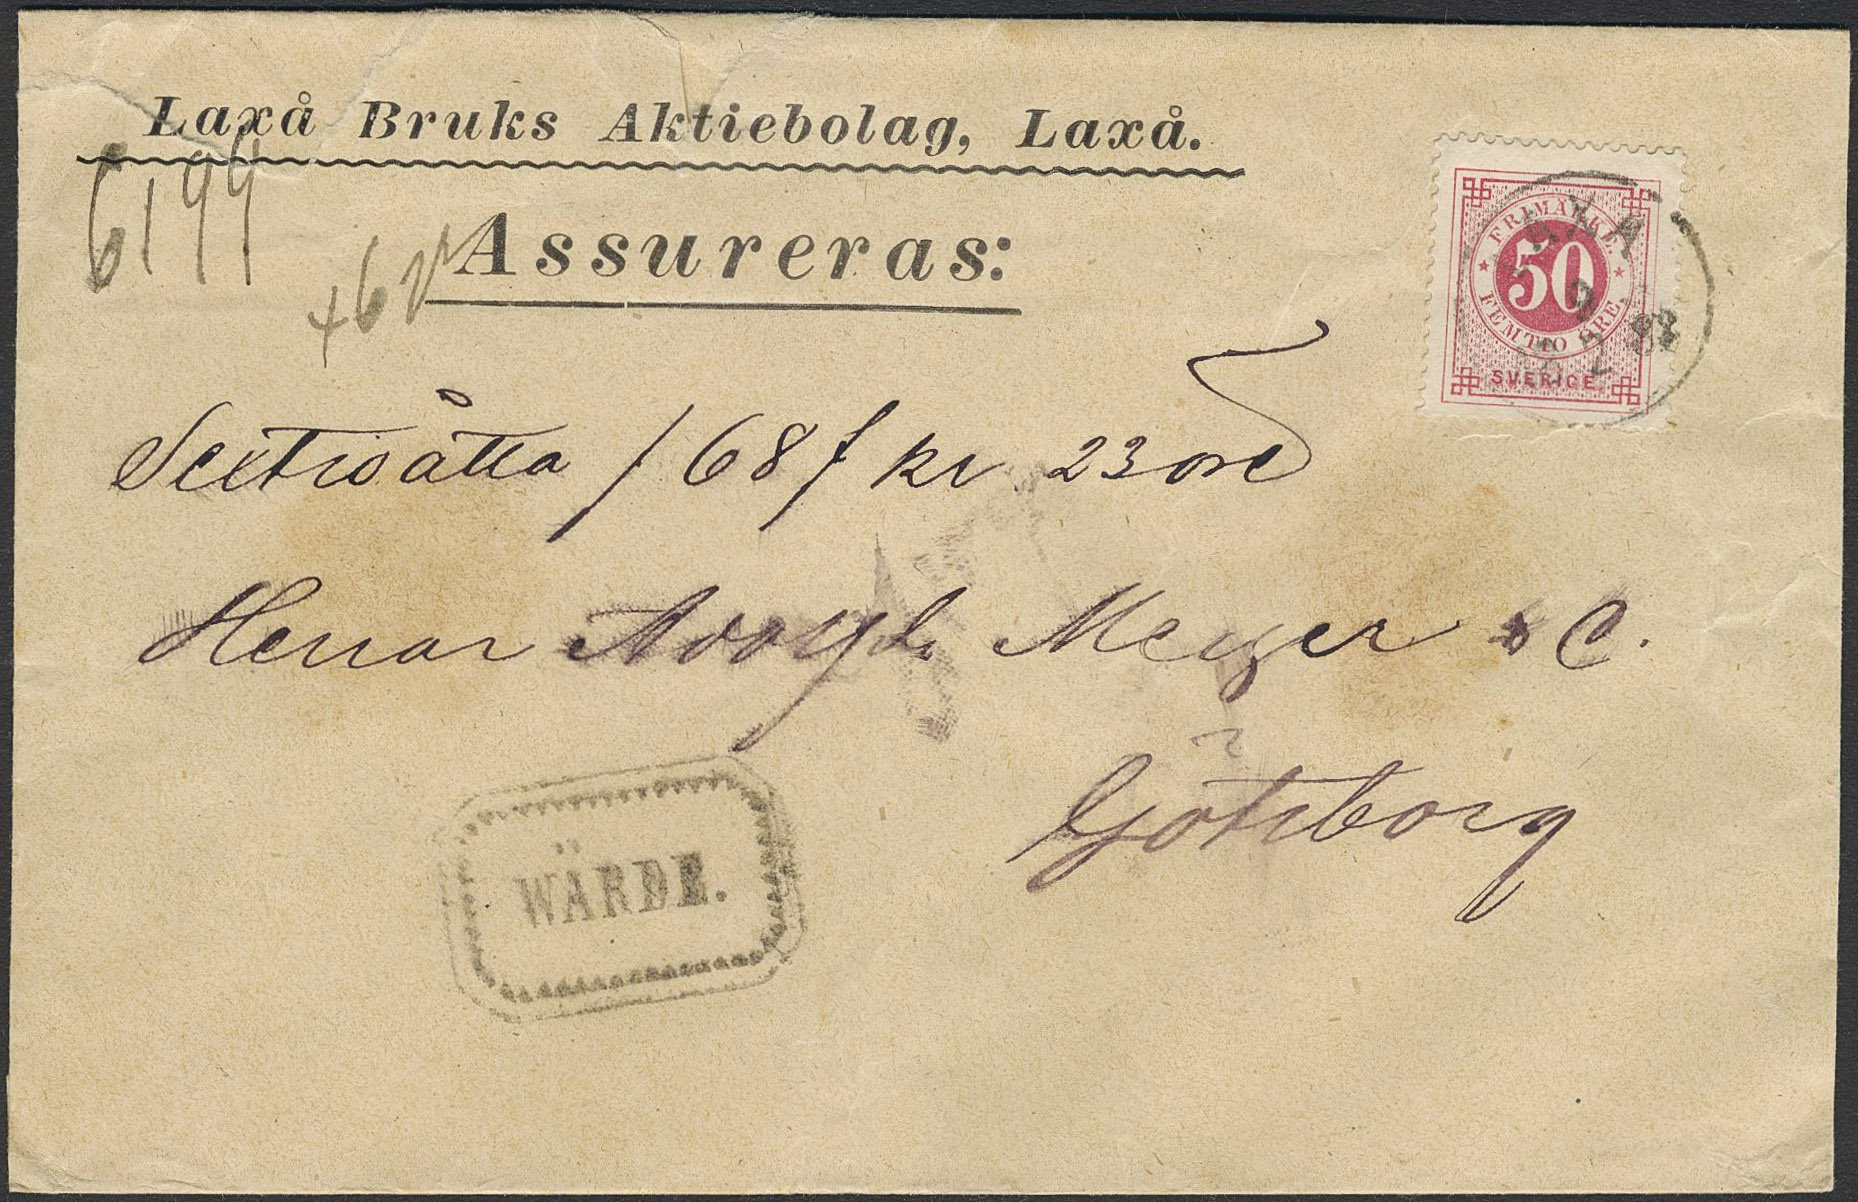 Laxå Bruks Aktiebolag, Laxå.
6199
Assureras:
FRIMÄRKE
50
FEMTIO ÖRE
SVERIGE
LAXÅ
Sextioåtta /68/ kr 23 öre
Herrar Adolph Meyer & C.
Göteborg
WÄRDE.